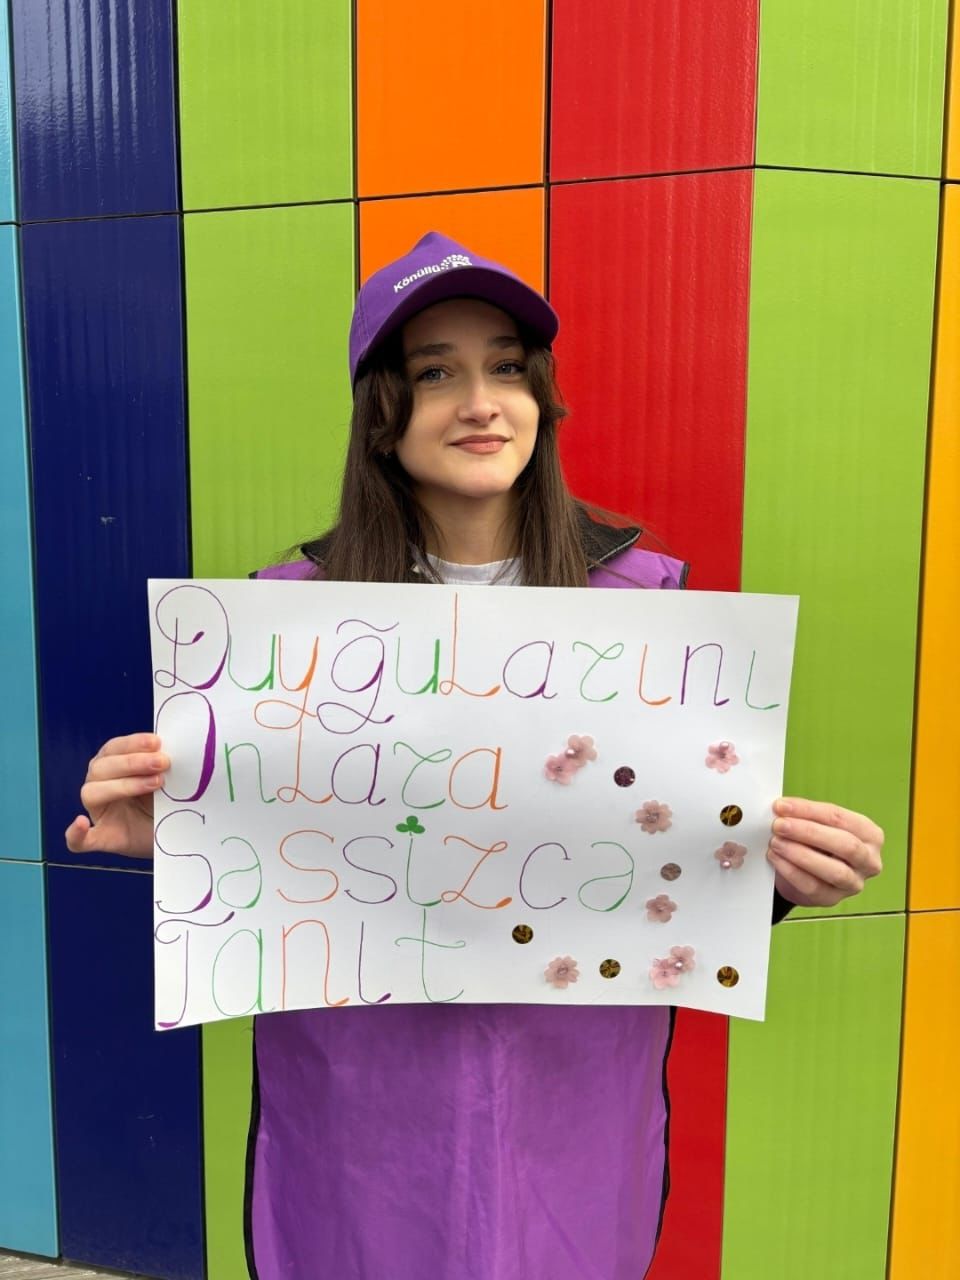 Könüllü
Duyğularını
Onlara
Səssizcə
Tanıt